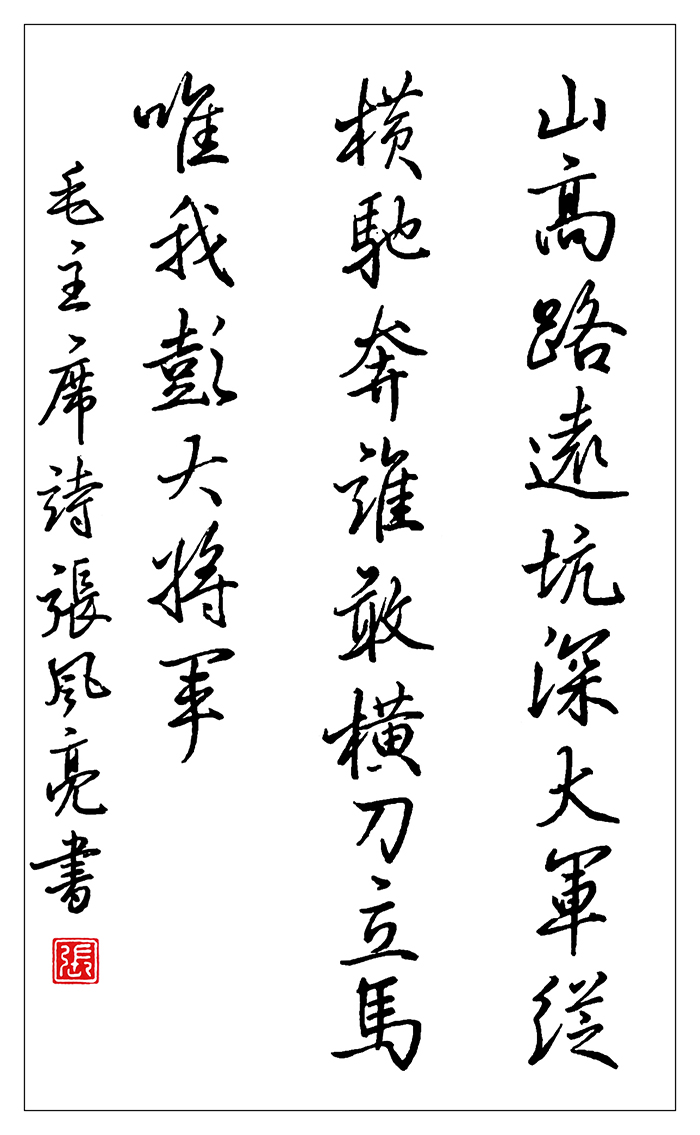 山高路遠坑深大軍縱
橫馳奔誰敢橫刀立馬
唯我彭大將軍
毛主席詩張風亮書
張